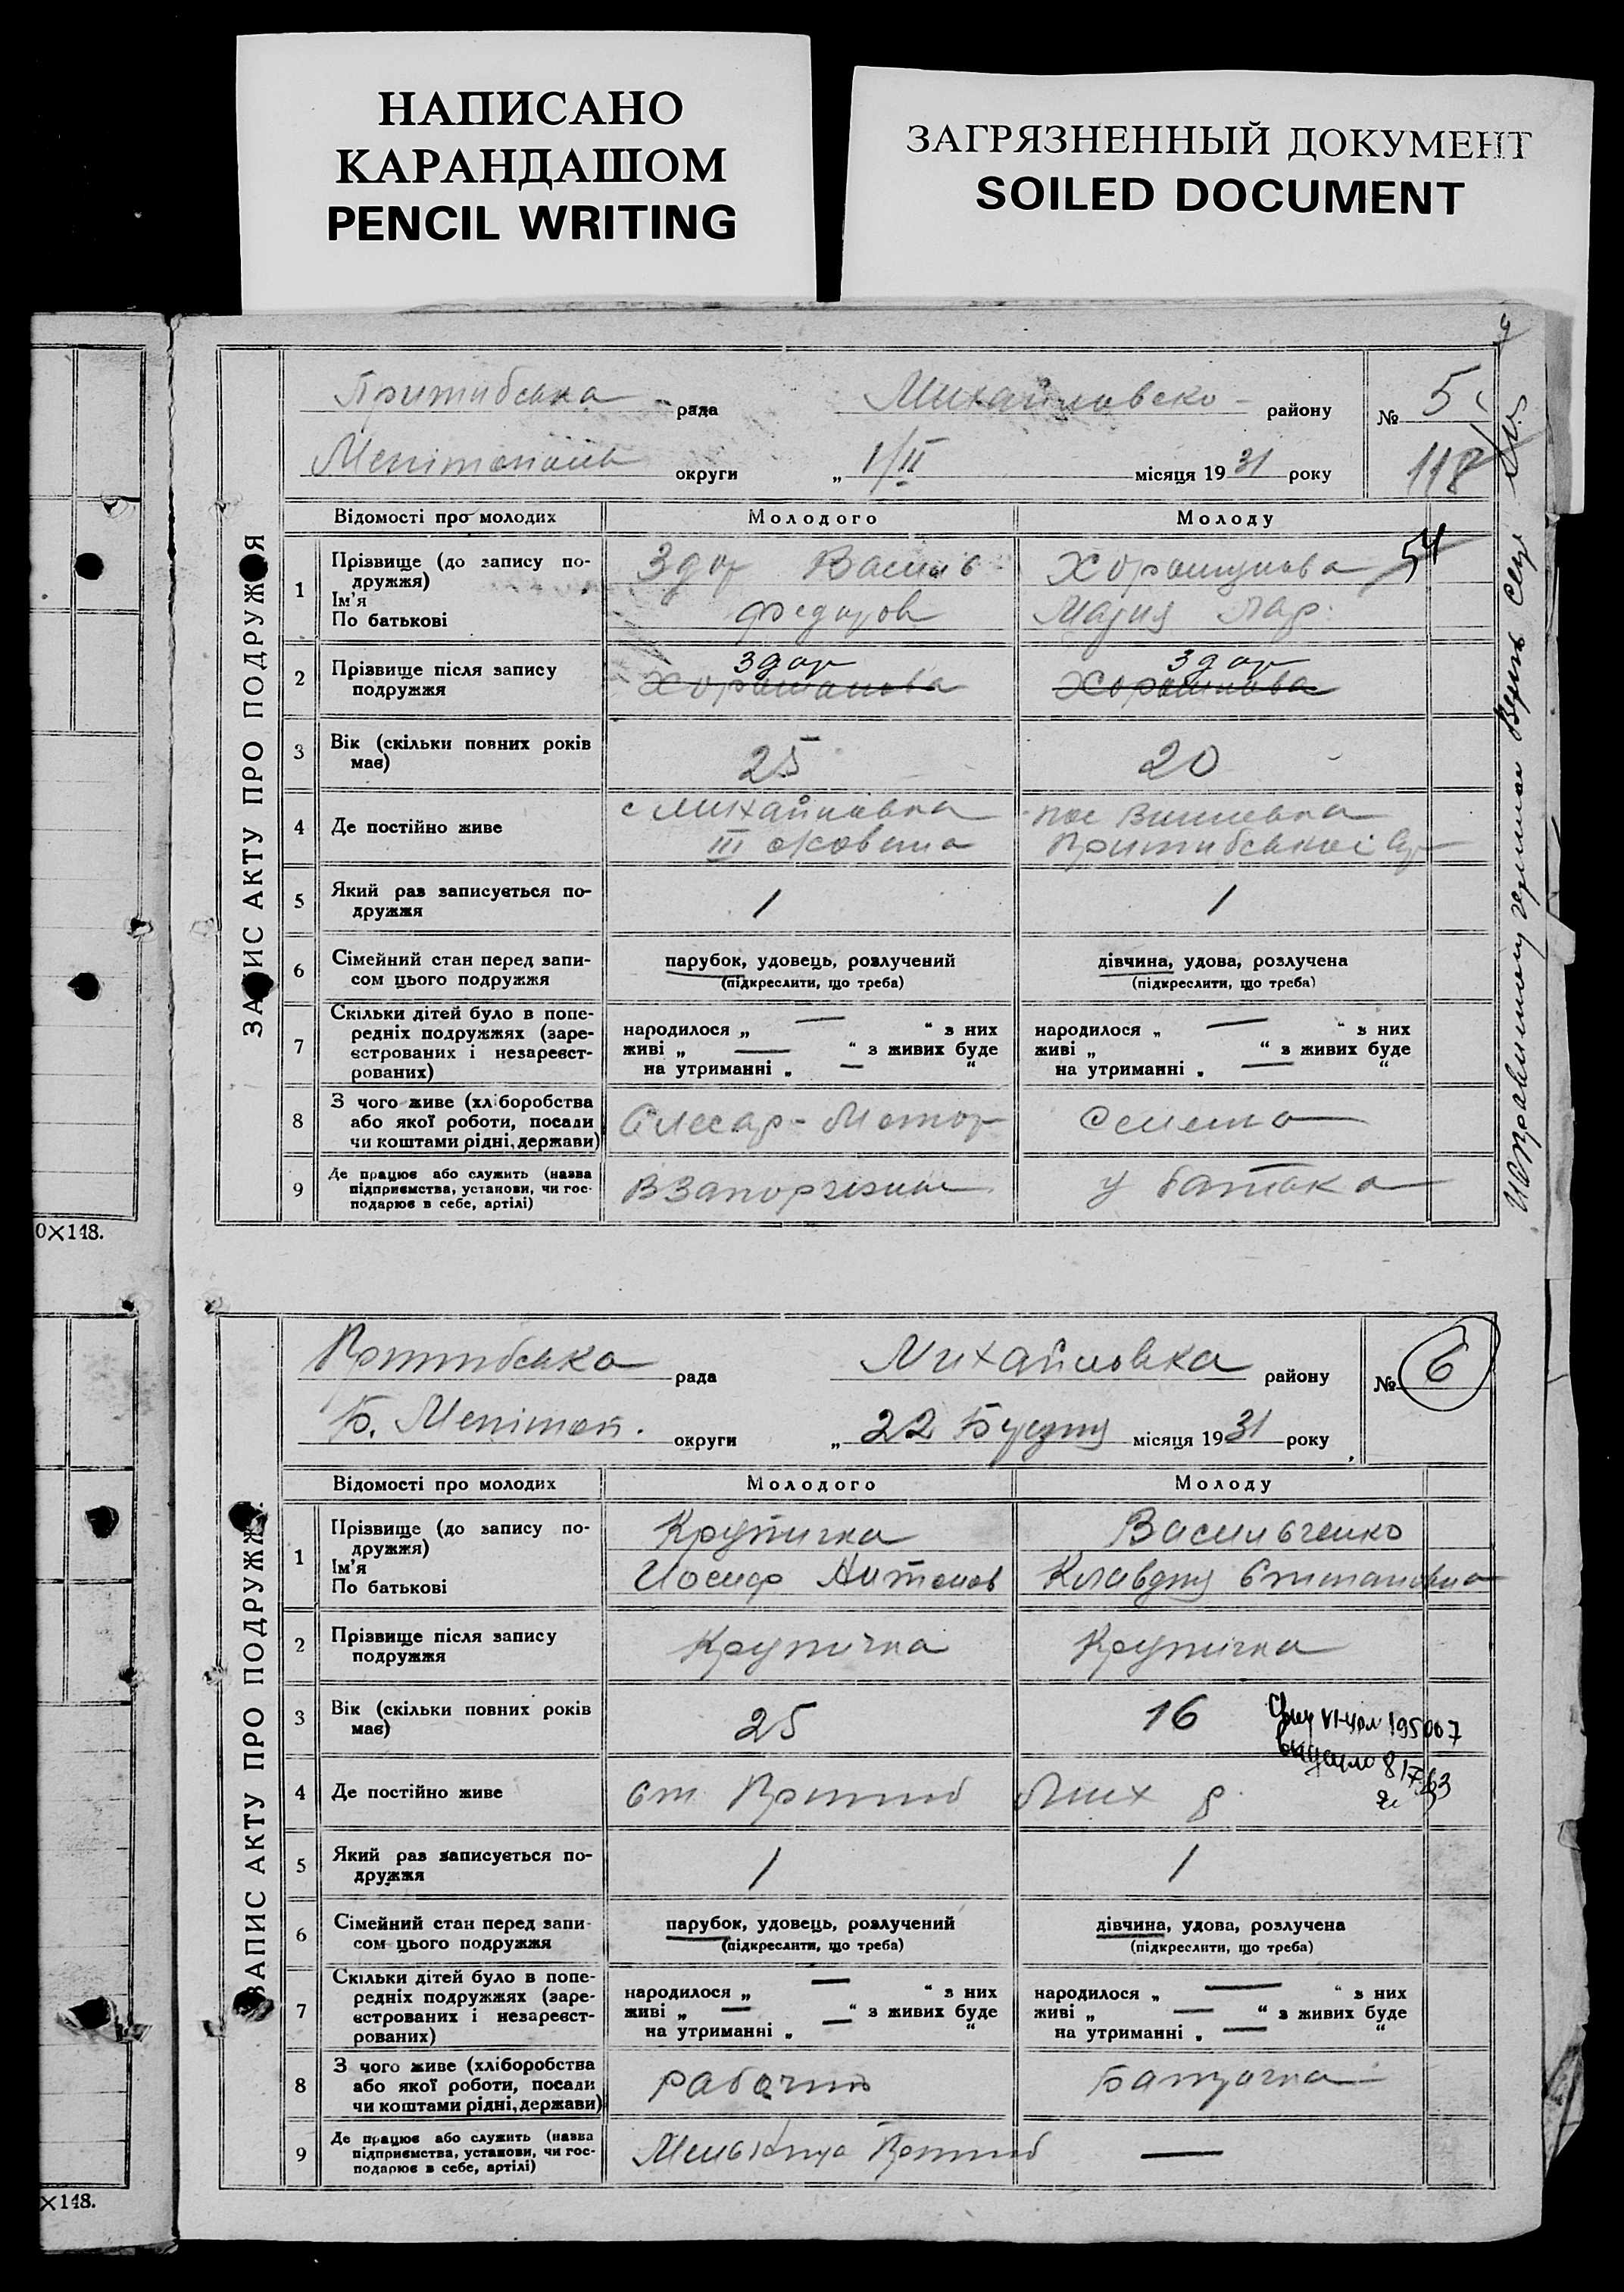 НАПИСАНО
КАРАНДАШОМ
PENCIL WRITING
ЗАГРЯЗНЕННЫЙ ДОКУМЕНТ
SOILED DOCUMENT
ЗАПИС АКТУ ПРО ПОДРУЖЖЯ
Пришибська рада Михайловско районy № 5
округи „ 1/II місяця 19 31 року 118
Відомості про молодих Молодого Молоду
1 Прізвище (до запису подружжя) Здор Василь 54
Ім’я
По батькові Федоров Мария
2 Прізвище після запису подружжя Здор Здор
3 Вік (скільки повних років має) 25 20
4 Де постійно живе с Михайловка пос Вишневка
III Пришибської
5 Який раз записується подружжя 1 1
6 Сімейний стан перед записом цього подружжя парубок, удовець, розлучений дівчина, удова, розлучена
(підкреслити, що треба) (підкреслити, що треба)
7 Скільки дітей було в попередніх подружжях (зареєстрованих і незареєстрованих) народилося „ — “ з них народилося „ — “ з них
живі „ — “ з живих буде живі „ “ з живих буде
на утриманні „ — “ на утриманні „ — “
8 З чого живе (хліборобства або якої роботи, посади чи коштами рідні, держави) Слесар-Мотор
9 Де працює або служить (назва підприємства, установи, чи господарює в себе, артілі) В Запоріжжи у батька
0×148.
ЗАПИС АКТУ ПРО ПОДРУЖЖЯ
Пришибська рада Михайловка району № 6
Б. Мелітоп. округи „ 22 місяця 19 31 року
Відомості про молодих Молодого Молоду
1 Прізвище (до запису подружжя) Крупичка Васильченко
Ім’я
По батькові Иосиф Антонов Клавдия
2 Прізвище після запису подружжя Крупичка Крупичка
3 Вік (скільки повних років має) 25 16
4 Де постійно живе ст Пришиб
5 Який раз записується подружжя 1 1
6 Сімейний стан перед записом цього подружжя парубок, удовець, розлучений дівчина, удова, розлучена
(підкреслити, що треба) (підкреслити, що треба)
7 Скільки дітей було в попередніх подружжях (зареєстрованих і незареєстрованих) народилося „ — “ з них народилося „ — “ з них
живі „ — “ з живих буде живі „ — “ з живих буде
на утриманні „ — “ на утриманні „ — “
8 З чого живе (хліборобства або якої роботи, посади чи коштами рідні, держави) рабочий
9 Де працює або служить (назва підприємства, установи, чи господарює в себе, артілі) Пришиб —
×148.